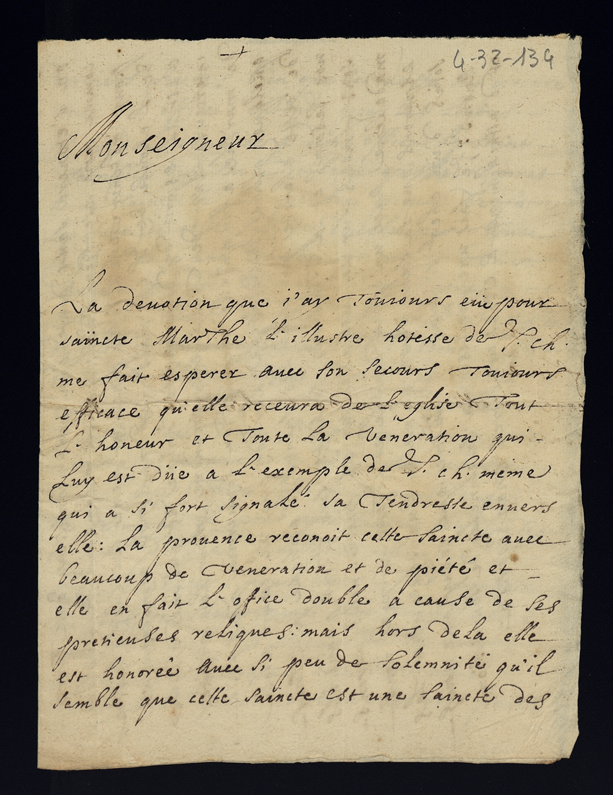 4-32-134
Monseigneur
La devotion que i'ay Toûiours eüe pour
saincte Marthe L'illustre hotesse de J. ch.
me fait esperer avec son secours Toûiours
efficace qu'elle recevra de L'eglise Tout
L'honeur et Toute La veneration qui
Luy est düe a L'exemple de J. ch. meme
qui a si fort signalé sa Tendresse envers
elle: La provence reconoit cette saincte avec
beaucoup de veneration et de piété et
elle en fait L'ofice double a cause de ses
pretieuses reliques: mais hors de la elle
est honoreé avec si peu de solemnité qu'il
semble que cette saincte est une saincte des